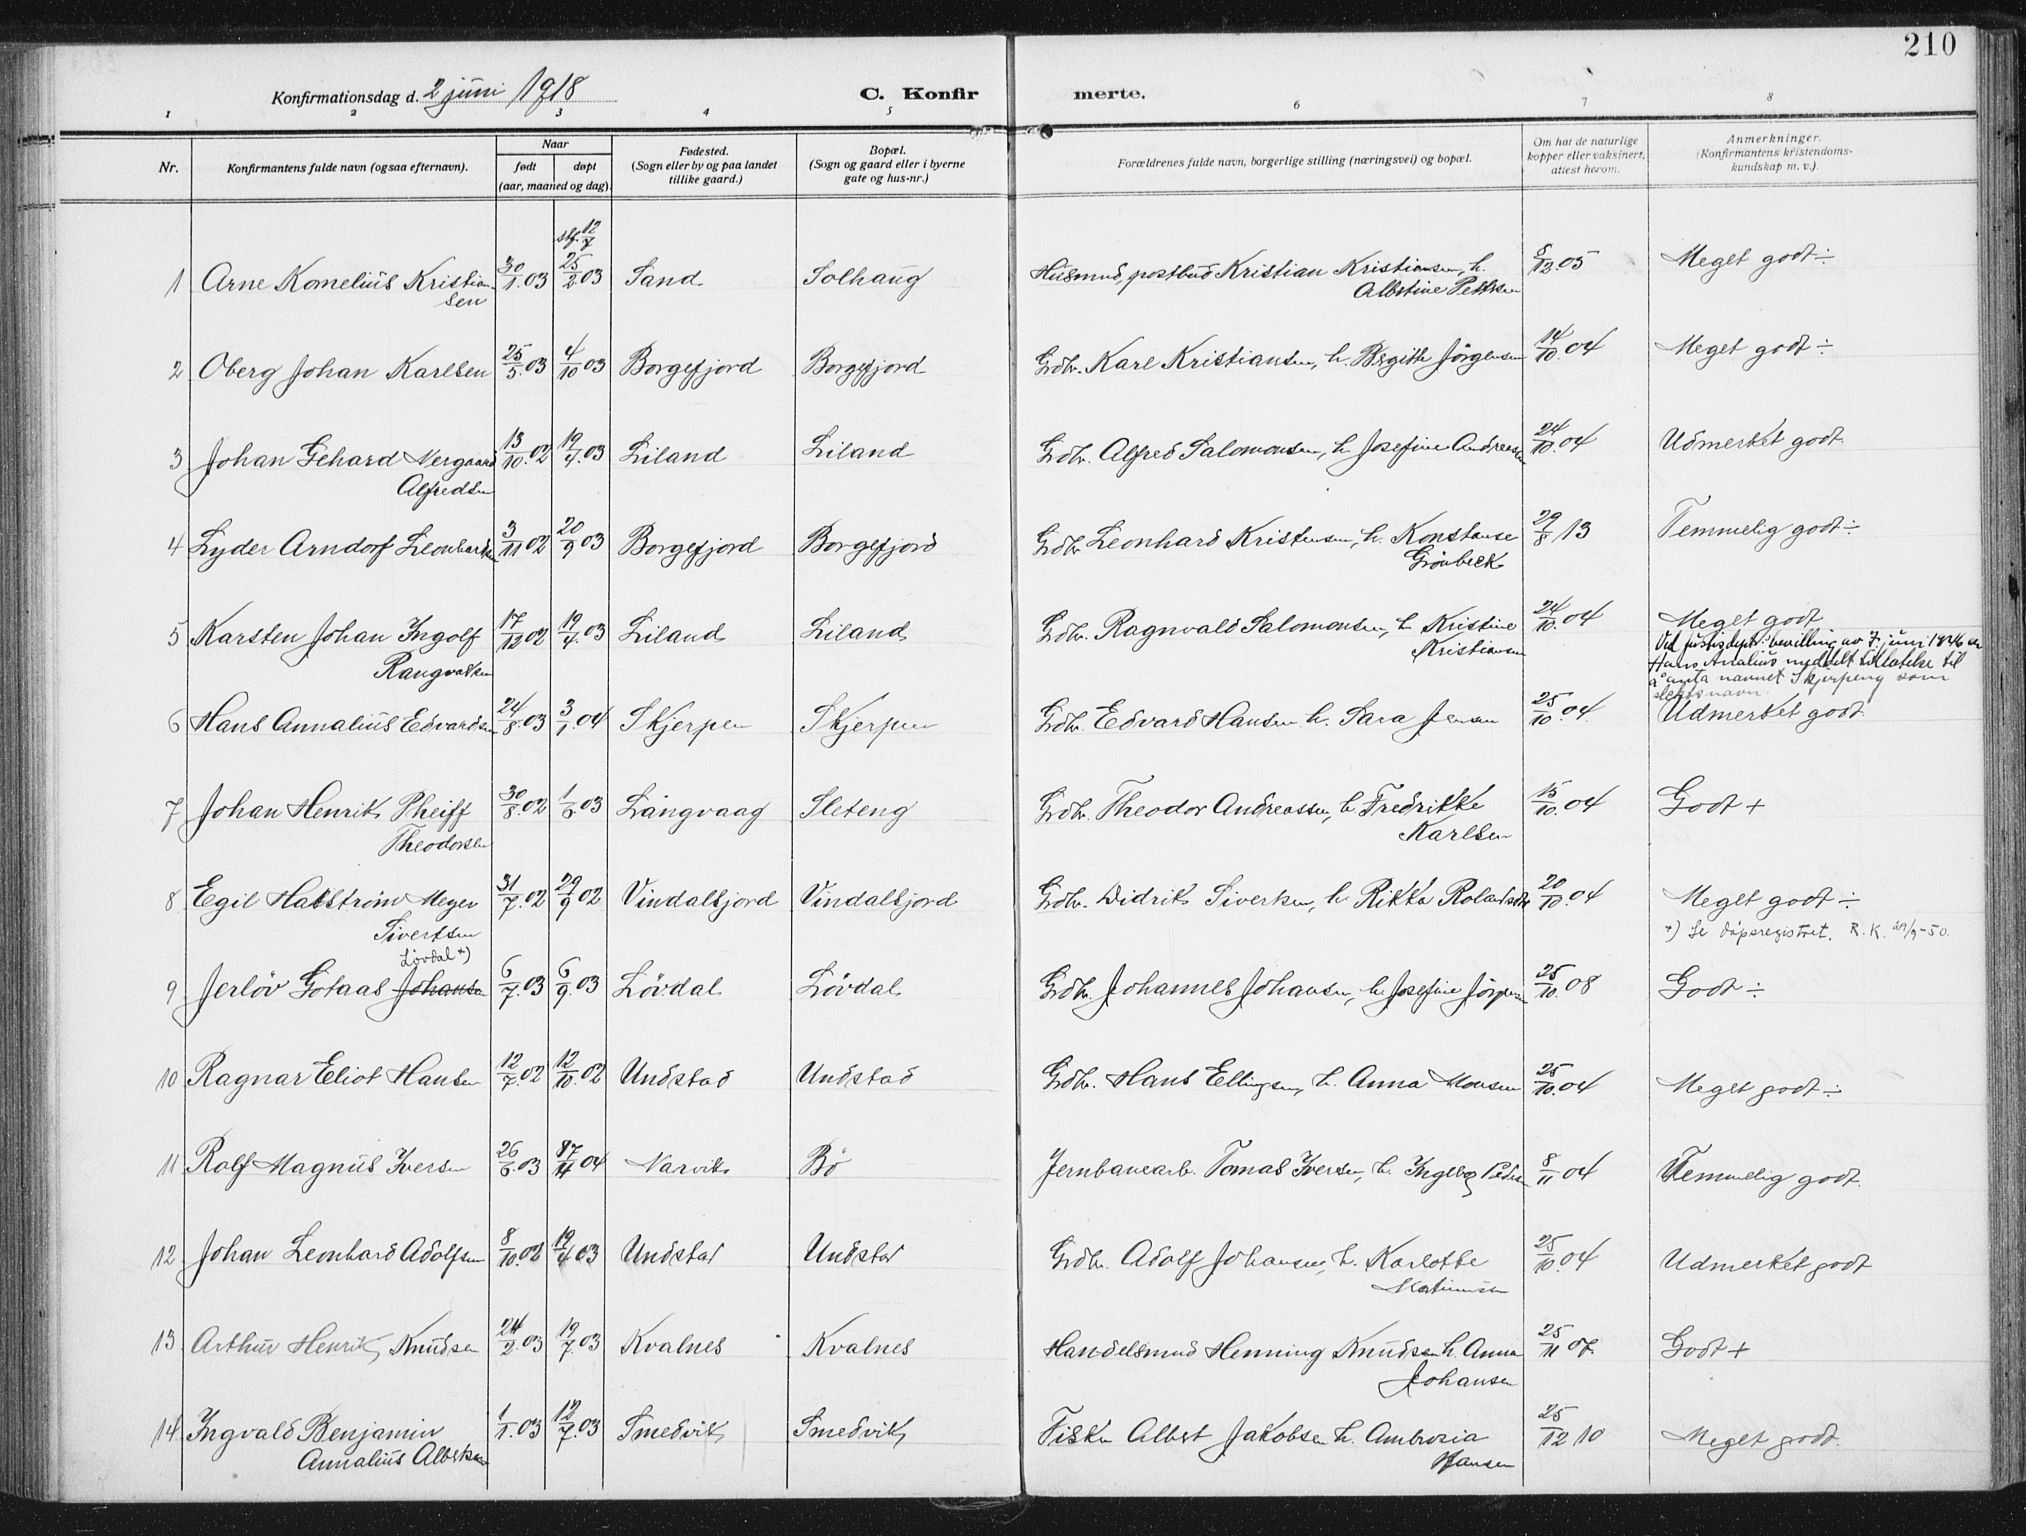 210
Konfirmationsdag d. 2 juni 1918 C. Konfir merte.
1 2 3 4 5 6 7 8
Nr. Konfirmantens fulde navn (ogsaa efternavn). Naar født døpt (aar, maaned og dag). Fødested. (Sogn eller by og paa landet tillike gaard.) Bopæl. (Sogn og gaard eller i byerne gate og hus-nr.) Forældrenes fulde navn, borgerlige stilling (næringsvei) og bopæl. Om hat de naturlige kopper eller vaksinert, attest herom. Anmerkninger. (Konfirmantens kristendoms-kundskap m. v.).
stf. 12/7
1 Arne Kornelius Kristian 30/1.03 25/2.03 Sand Solhaug Husmnd, postbud Kristian Kristiansen, h. 8/12.05 Meget godt ÷
sen Albertine Pettersen
2 Oberg Johan Karlsen 25/5.03 4/10.03 Borgefjord Borgefjord Grdbr. Karl Kristiansen, h. Bergitte Jörgensen 14/10.04 Meget godt ÷
3 Johan Gehard Nergaard 13/10.02 19/4.03 Liland Liland Grdbr. Alfred Salomonsen, h. Josefine Andreassen 24/10.04 Udmerket godt.
Alfredsen
4 Lyder Arndorf Leonhardsen 3/11.02 20/9.03 Borgefjord Borgefjord Grdbr. Leonhard Kristensen, h. Konstanse 29/8.13 Temmelig godt ÷
Grönbeck
5 Karsten Johan Ingolf 17/12.02 19/4.03 Liland Liland Grdbr. Ragnvald Salomonsen, h. Kristine 24/10.04 Meget godt
Rangvalsen Kristiansen
Ved justisdept. bevilling av 7. juni 1946 er
Hans Analius meddelt tillatelse til
å anta navnet Skjerpeng som
slektsnavn.
6 Hans Annalius Edvardsen 24/8.03 3/1.04 Skjerpen Skjerpen Grdbr. Edvard Hansen h. Sara Jensen 25/10.04. Udmerket godt
7 Johan Henrik Pheiff 30/8.02 1/6.03 Langvaag Sleteng Grdbr. Theodor Andreassen, h. Fredrikke 15/10.04 Godt +
Theodorsen Karlsen
8 Egil Halstrøm Meyer 31/7.02 29/9.02 Vindalsfjord Vindalsfjord Grdbr. Didrik Sivertsen, h. Rikka 20/10.04 Meget godt ÷
Sivertsen
Lövdal +) +) Se dåpsregistret. R.K.
9 Jerlöv Gotaas Johansen 6/7.03 6/9.03 Lövdal Lövdal Grdbr. Johannes Johansen, h. Josefine Jörgensen 25/10.08 Godt ÷
10 Ragnar Eliot Hansen 12/7.02 12/10.02 Undstad Undstad Grdbr. Hans Ellingsen, h. Anna Monsen 25/10.04 Meget godt ÷
11 Rolf Magnus Iversen 26/6.03 04 Narvik Bö Jernbanearb. Tomas Iversen, h. Ingeborg Pedersen 8/11.04 Temmelig godt.
12 Johan Leonhard Adolfsen 8/10.02 19/4.03 Undstad Undstad Grdbr. Adolf Johansen, h. Karlotte 25/10.04 Udmerket godt
Martinussen
13 Arthur Henrik Knudsen 24/2.03 19/7.03 Kvalnes Kvalnes Handelsmnd Henning Knudsen h. Anna 25/11.07. Godt +
Johansen
14 Ingvald Benjamin 1/1.03 12/7.03 Smedvik Smedvik Fisker Albert Jakobsen h. Ambrosia 25/12.10 Meget godt.
Annalius Albertsen Hansen